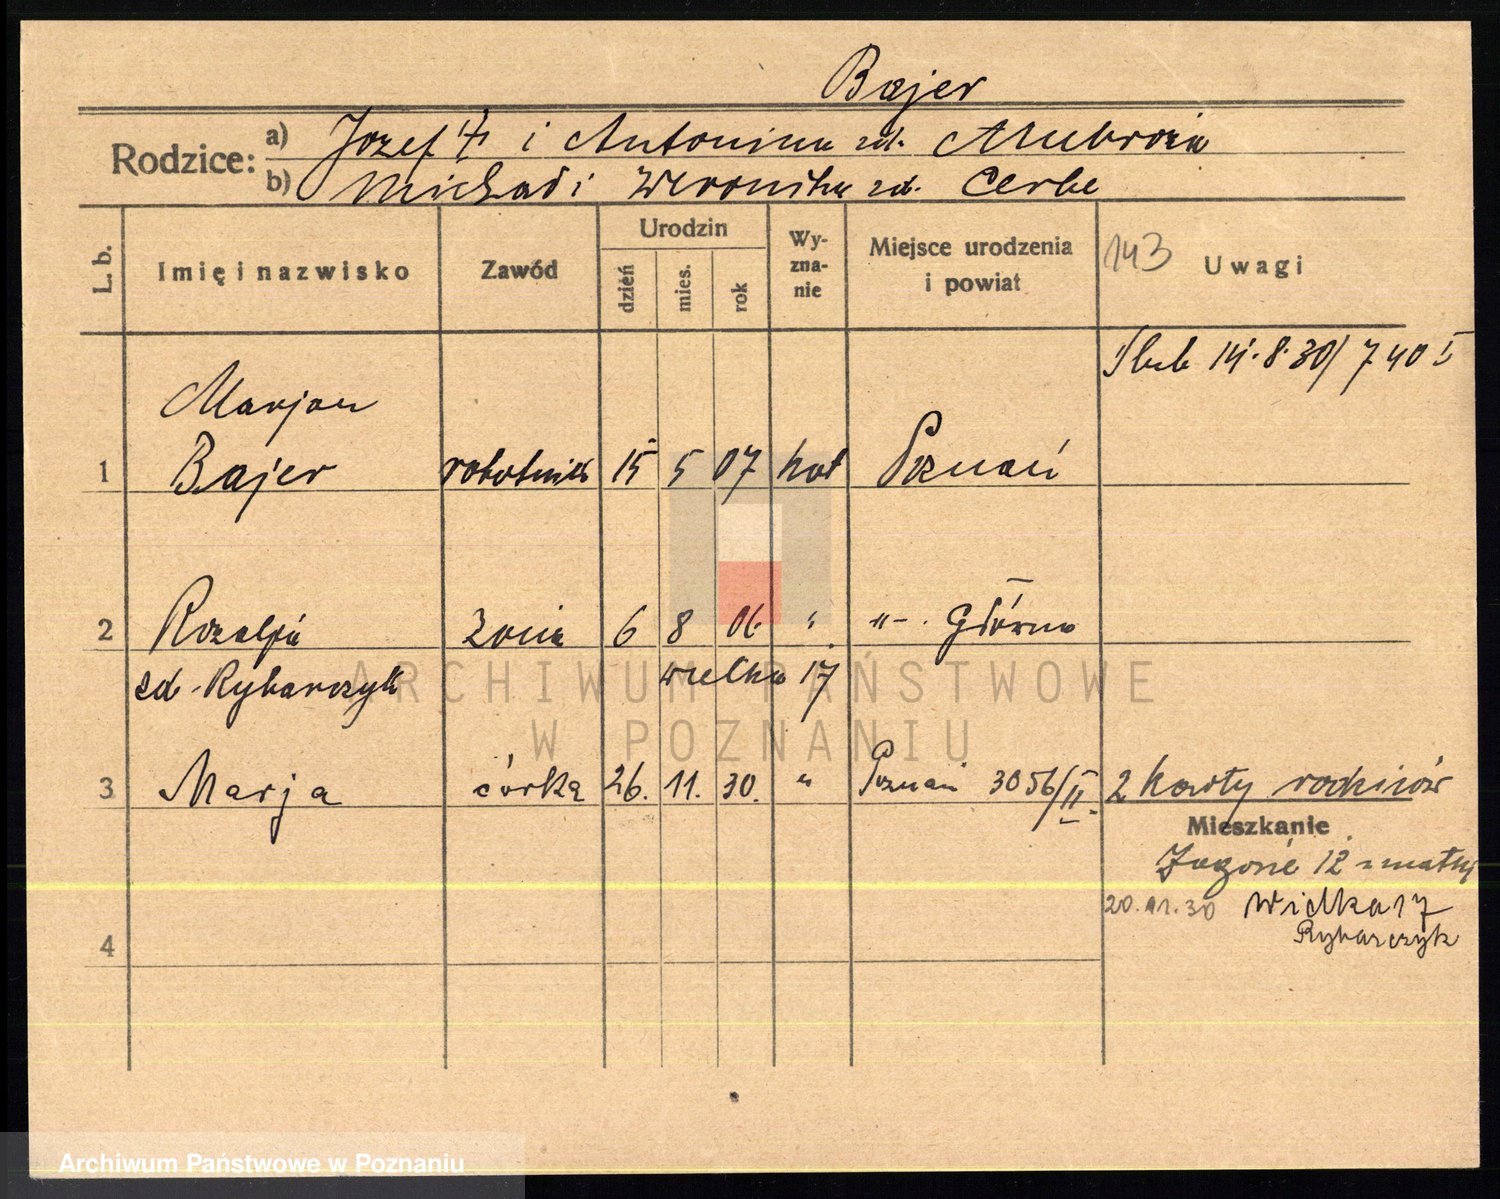 Bajer
Rodzice: a) Jozef i Antonina zd. Ambroża
b) Michał i Weronika zd. Cerbe
L. b. Imię i nazwisko Zawód Urodzin dzień mies. rok Wy-zna-nie Miejsce urodzenia i powiat 143 Uwagi
Ślub 14.8.30/740 I
Marjan
1 Bajer robotnik 15 5 07 kat Poznań
2 Rozalja żona 6 8 06 " "-. Główna
zd. Rybarczyk wielka 17
3 Marja córka 26. 11. 30. " Poznań 3056/II 2 karty rodziców
Mieszkanie
12 matki
20.11.30 Wielka 17
Rybarczyk
4
ARCHIWUM PAŃSTWOWE
W POZNANIU
Archiwum Państwowe w Poznaniu